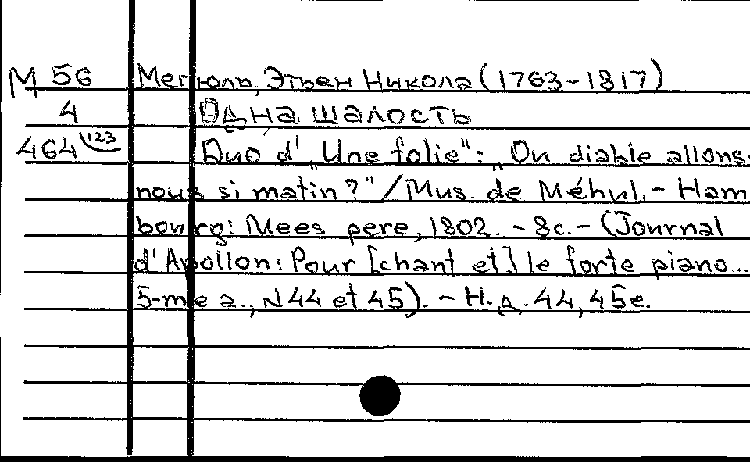 М 56 Мегюль, Этьен Никола (1763-1817)
4 Одна шалость
464 123 Duo d' „Une folie": „Ou diable allons-
nous si matin?" / Mus. de Méhul. - Ham
bourg: Mees pere, 1802. - 8с. - (Journal
d'Apollon: Pour [chant et] le forte piano...
5-me a., N 44 et 45). - Н.д. 44, 45e.